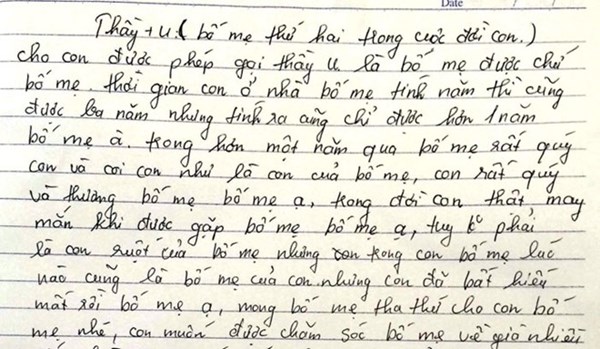 Date
Thầy + u. ( bố mẹ thứ hai trong cuộc đời con.)
cho con được phép gọi thầy u là bố mẹ được chứ
bố mẹ. thời gian con ở nhà bố mẹ tính năm thì cũng
được ba năm nhưng tính ra cũng chỉ được hơn 1 năm
bố mẹ à. trong hơn một năm qua bố mẹ rất quý
con và coi con như là con của bố mẹ, con rất quý
và thương bố mẹ bố mẹ ạ, trong đời con thật may
mắn khi được gặp bố mẹ bố mẹ ạ, tuy ko phải
là con ruột của bố mẹ nhưng trong con bố mẹ lúc
nào cũng là bố mẹ của con. nhưng con đã bất hiếu
mất rồi bố mẹ ạ, mong bố mẹ tha thứ cho con bố
mẹ nhé, con muốn được chăm sóc bố mẹ về già nhiều